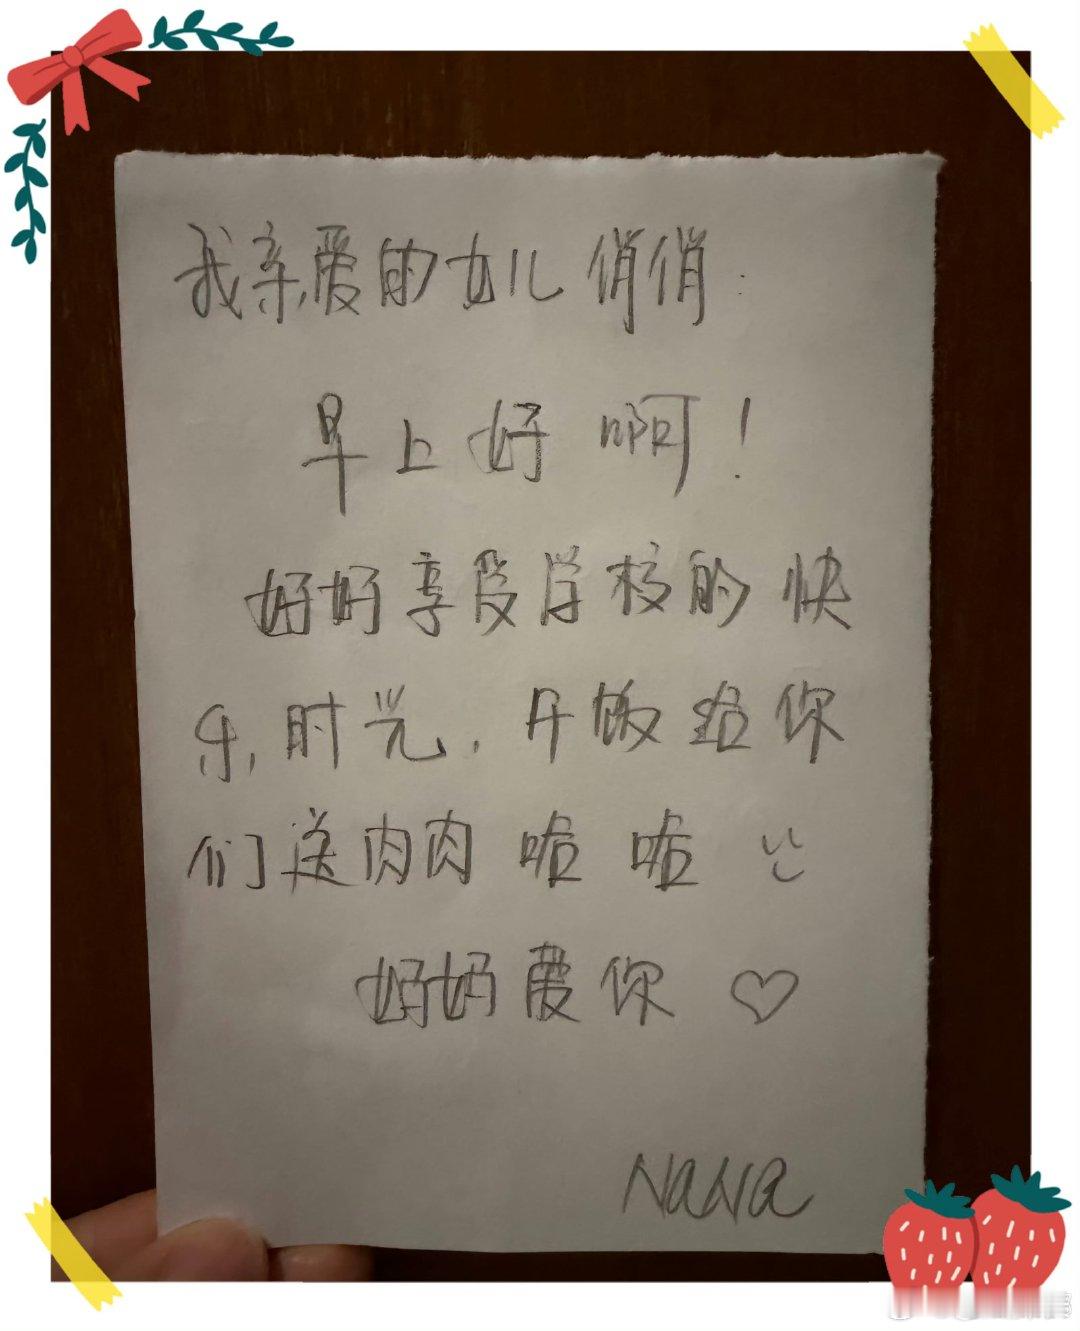 我亲爱的女儿俏俏：
早上好啊！
好好享受学校的快
乐时光，午饭给你
们送肉肉啦啦
妈妈爱你♡
NaNa